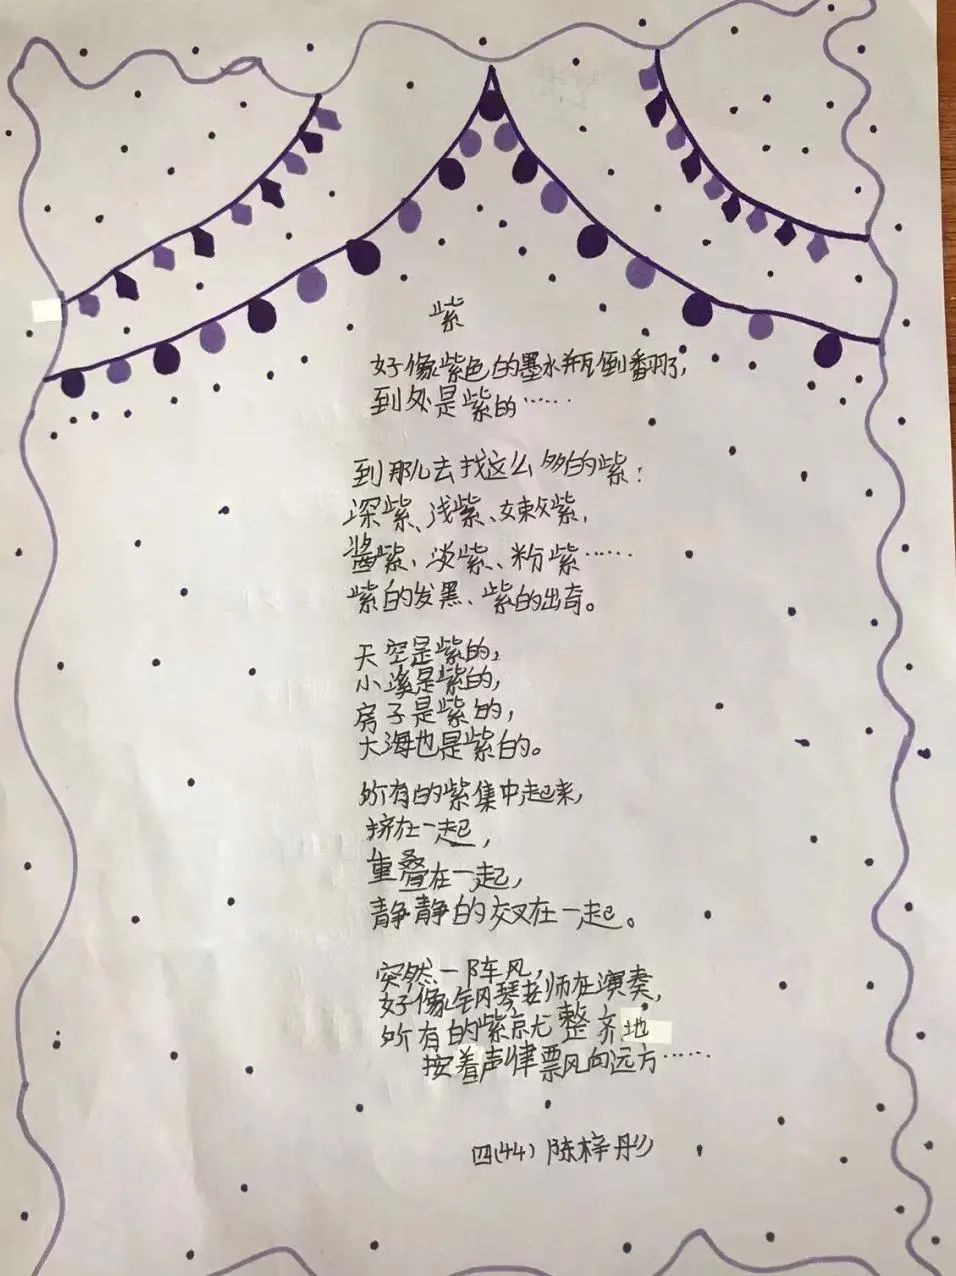 紫
好像紫色的墨水瓶倒翻了,
到处是紫的……
到那儿去找这么多的紫:
深紫、浅紫、嫩紫,
酱紫、淡紫、粉紫……
紫的发黑、紫的出奇。
天空是紫的,
小溪是紫的,
房子是紫的,
大海也是紫的。
所有的紫集中起来,
挤在一起,
重叠在一起,
静静的交叉在一起。
突然一阵风,
好像钢琴老师在演奏,
所有的紫就整齐地
按着声律飘向远方……
四(44) 陈梓彤